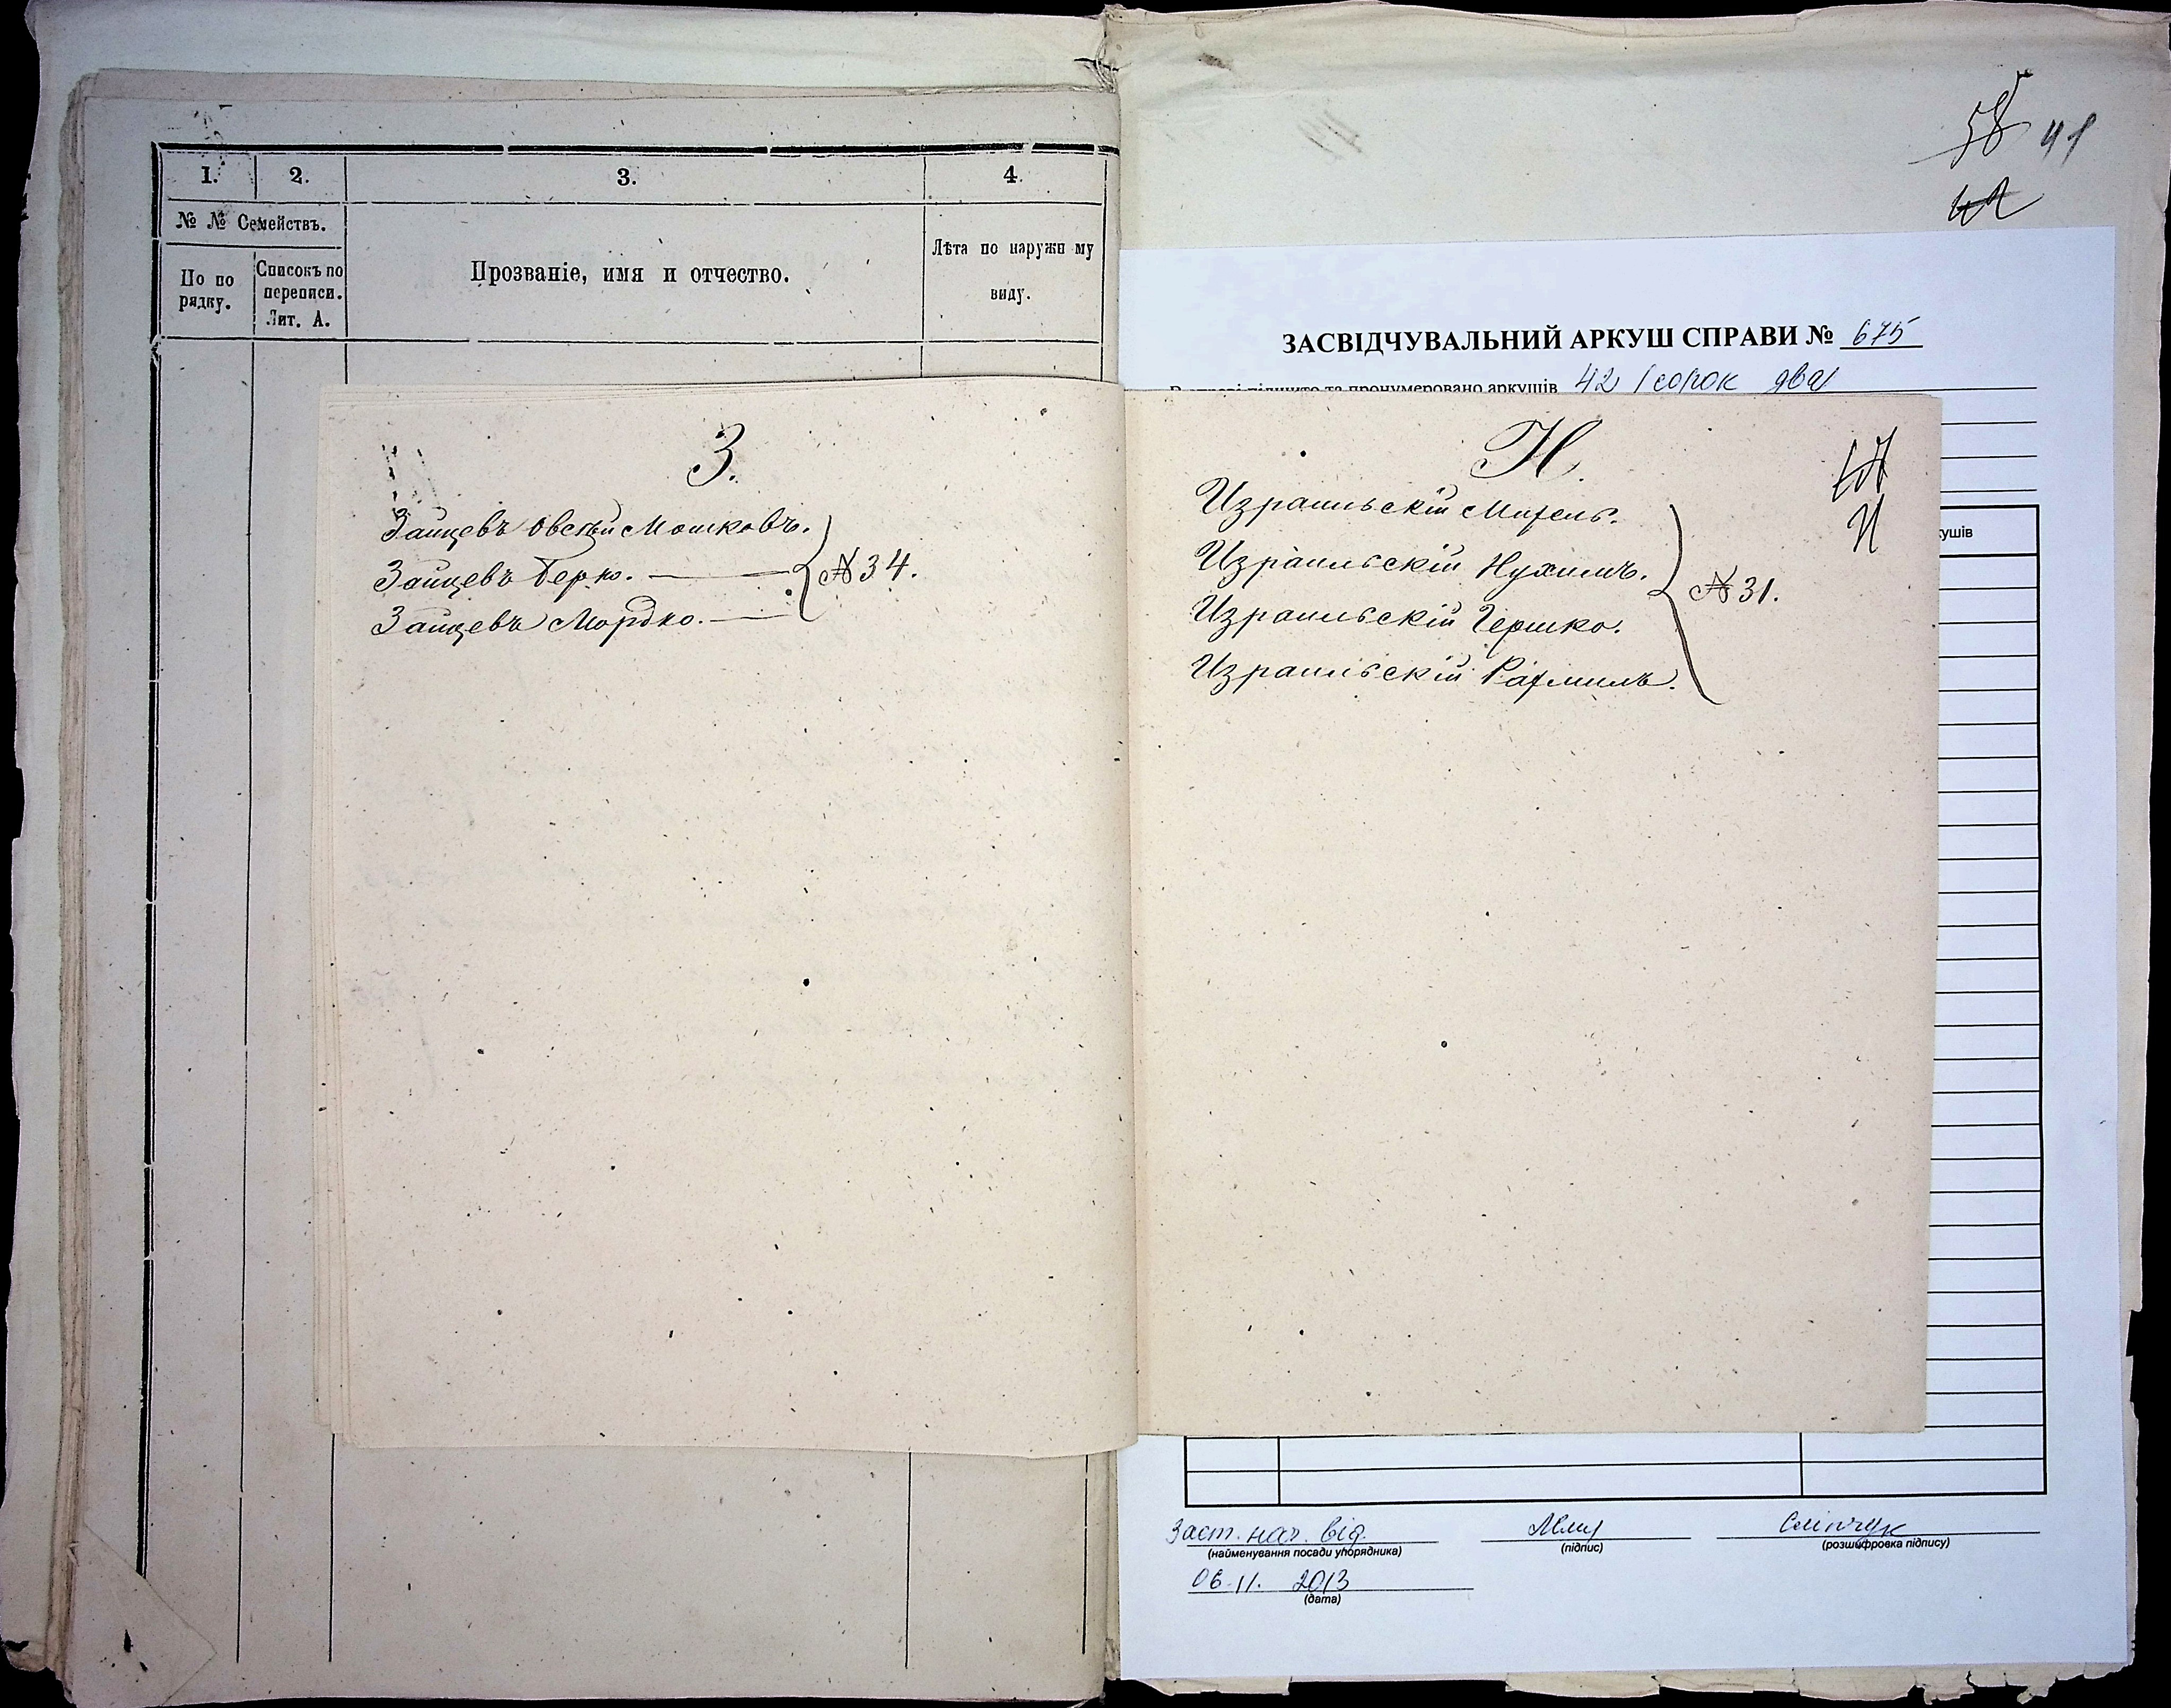 1. 2. 3. 4.
№ № Семействъ.
По по рядку.
Списокъ по переписи. Лит. А.
Прозваніе, имя и отчество.
Лѣта по наружн му виду.
З.
Зайцевъ Овсѣй Мошковъ.
Зайцевъ Берко. № 34.
Зайцевъ Мордко.
58 41
42
ЗАСВІДЧУВАЛЬНИЙ АРКУШ СПРАВИ № 675
підшито та пронумеровано аркушів 42 (сорок два)
И.
Израильскій
Израильскій Нухимъ.
№ 31.
Израильскій Гершко.
Израильскій Рахмиль.
кушів
Заст. нач. від.
(найменування посади упорядника)
(підпис)
Сліпчук
(розшифровка підпису)
06.11. 2013
(дата)